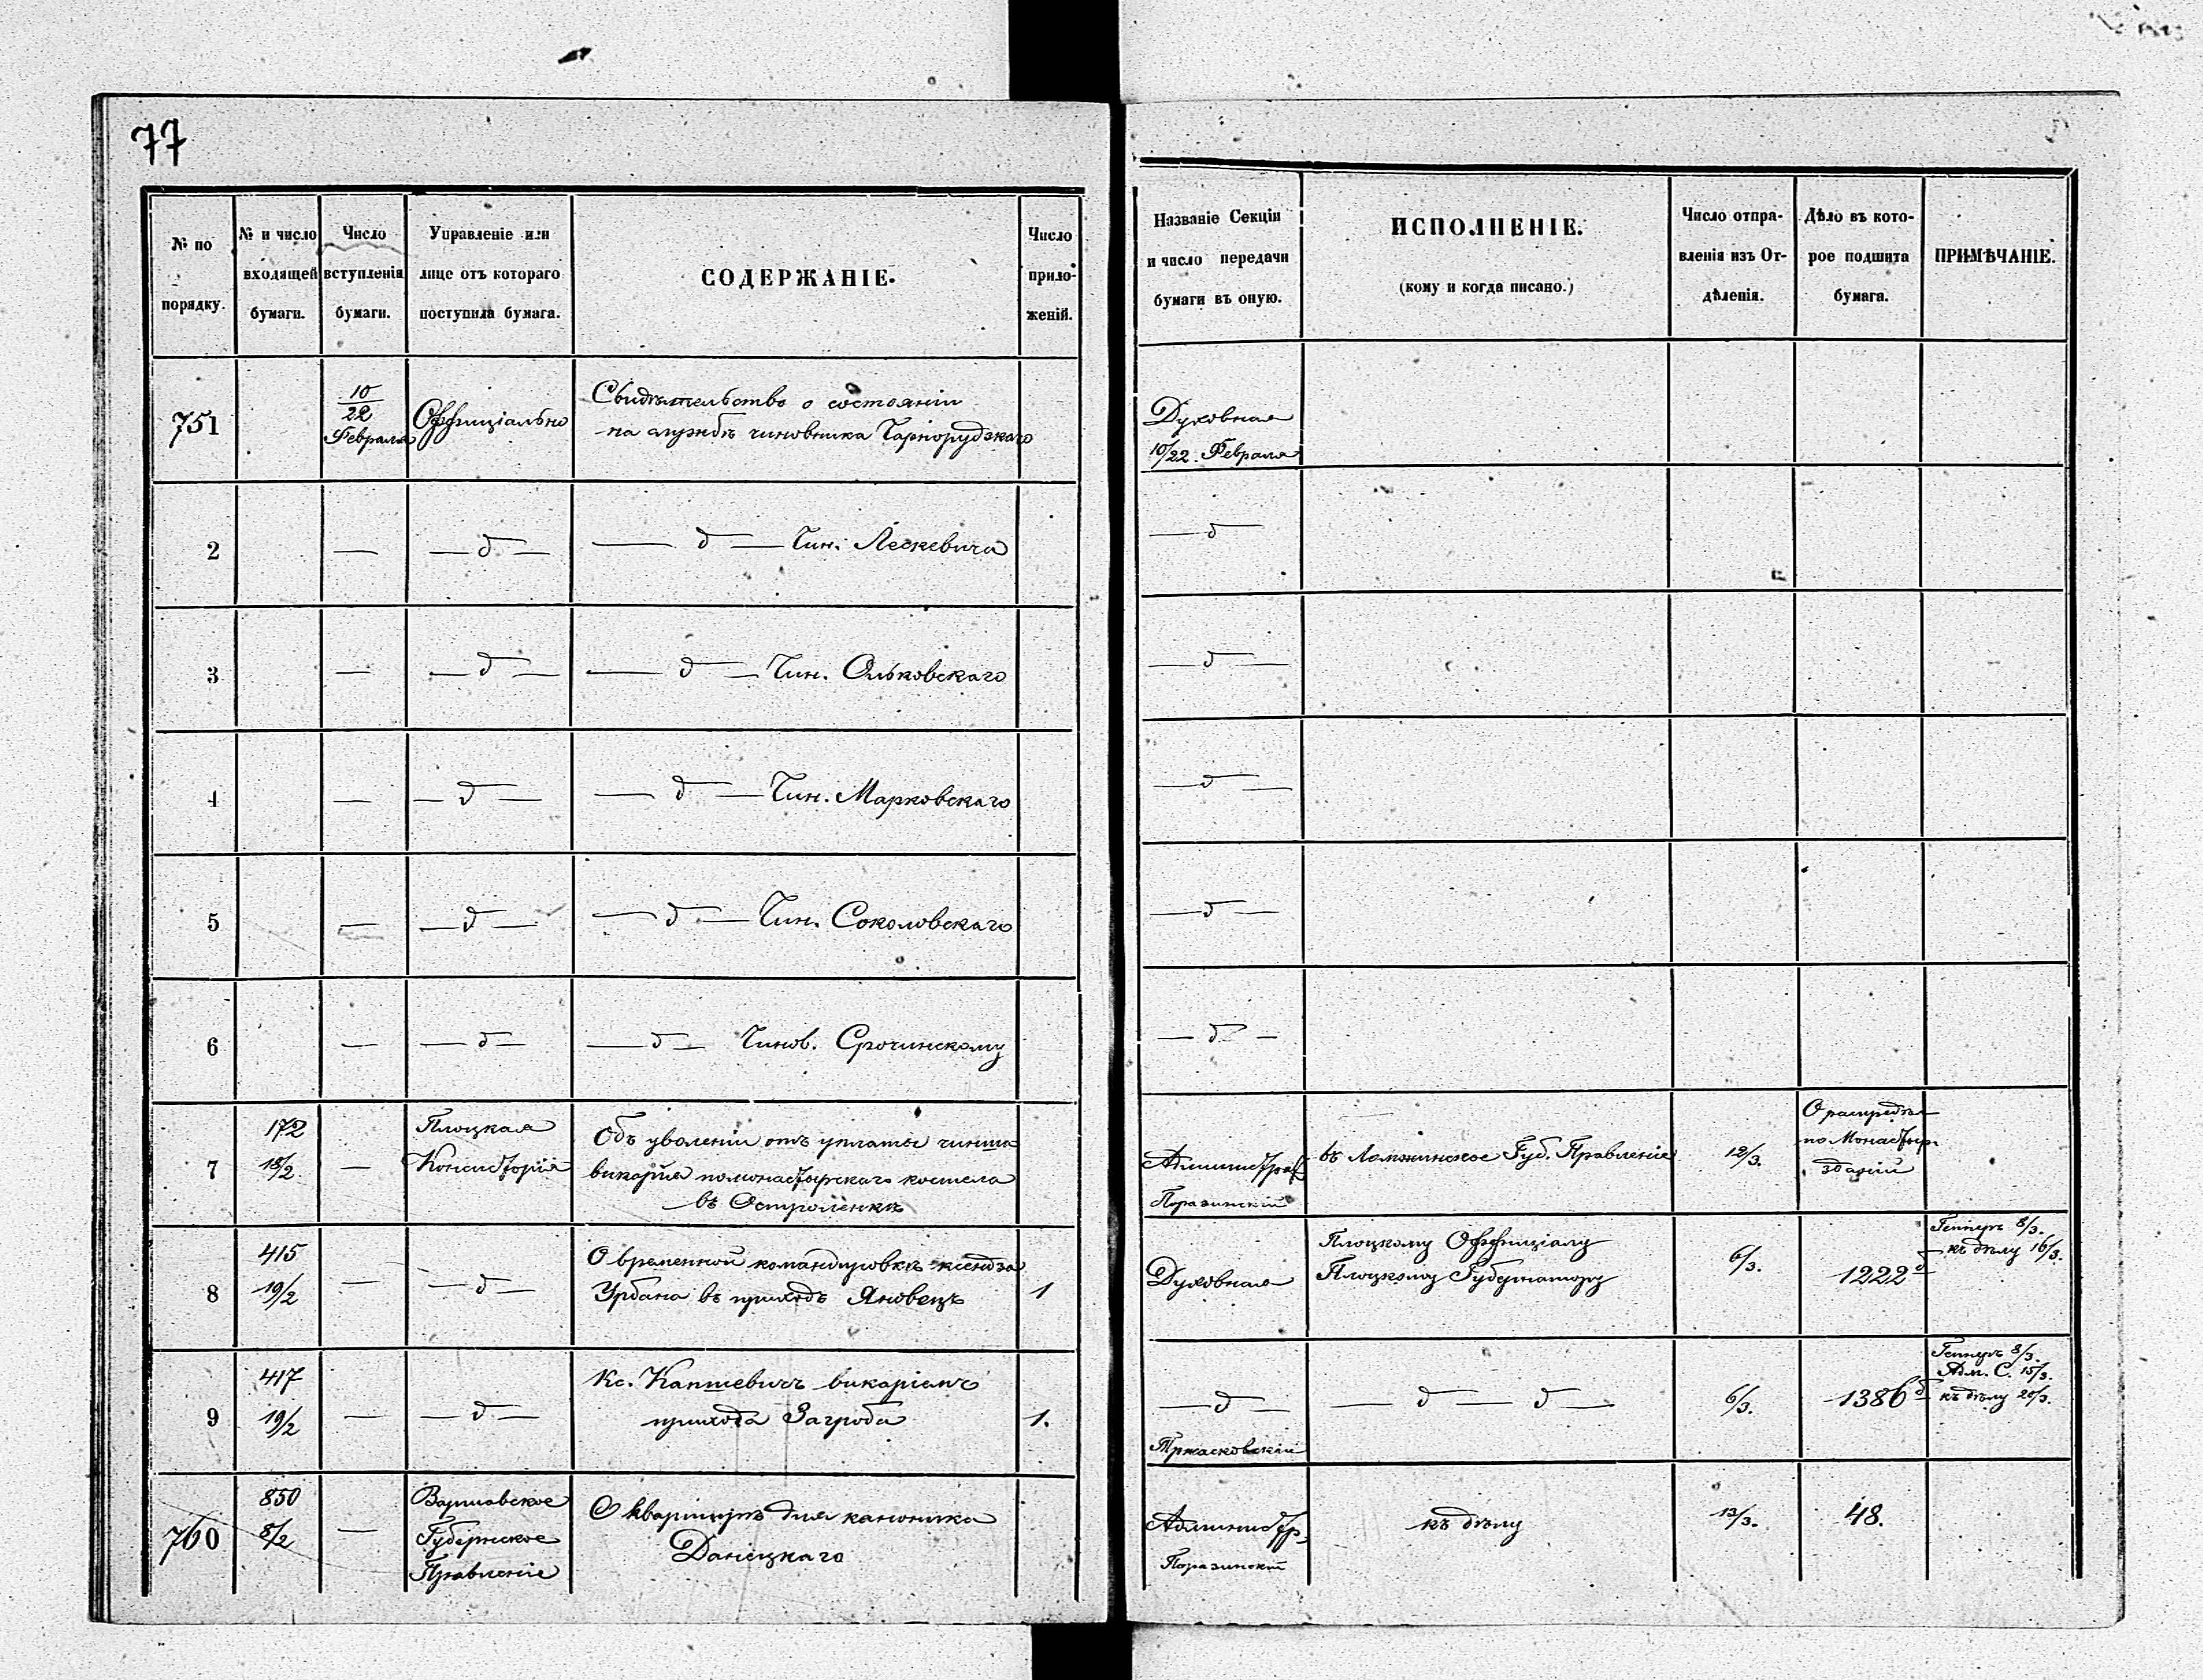 77
№ по порядку.
№ и число входящей бумаги.
Число вступленія бумаги.
Управленіе или лице отъ котораго поступила бумага.
СОДЕРЖАНІЕ.
Число приложеній.
Названіе Секціи и число передачи бумаги въ оную.
ИСПОЛНЕНІЕ.
(кому и когда писано.)
Число отправленія изъ Отдѣленія.
Дѣло въ которое подшита бумага.
ПРИМѢЧАНІЕ.
751
10/22
Февраля
Оффиціально
Свидѣтельство о состояніи
на службѣ чиновника Чарнорудзкаго
Духовная
10/22. Февраля
2
— — д — — д — Чин. Лескевича
— д
3
— — д — — д — Чин. Ольковскаго
— д —
4
— — д — — д — Чин. Марковскаго
— д —
5
— — д — — д — Чин. Соколовскаго
— д —
6
— — д — — д — Чинов. Срочинскому
— д —
7
172
18/2
—
Плоцкая
Консисторія
Объ уволеніи отъ уплаты чинша
викарія помонастырскаго костела
въ Остроленкѣ
Поразинскій
въ Ломжинское Губ. Правленіе
12/3.
О распредѣл
по Монастыр.
зданій
8
415
19/2
—
— д —
О временной командировкѣ ксендза
Урбана въ приходъ Яновецъ
1
Духовная
Плоцкому Оффиціалу
Плоцкому Губернатору
6/3.
1222 д
8/3.
къ дѣлу 16/3.
9
417
19/2
—
— д —
Кс. Капшевичъ викаріемъ
прихода Загроба
1.
— д —
Тржасковскій
— д — д —
6/3.
1386 д
8/3.
Адм. С. 15/3.
къ дѣлу 20/3.
760
850
8/2
—
Варшавское
Губернское
Правленіе
О квартирѣ для каноника
Данецкаго
Администр.
Поразинскій
къ дѣлу
13/3.
48.